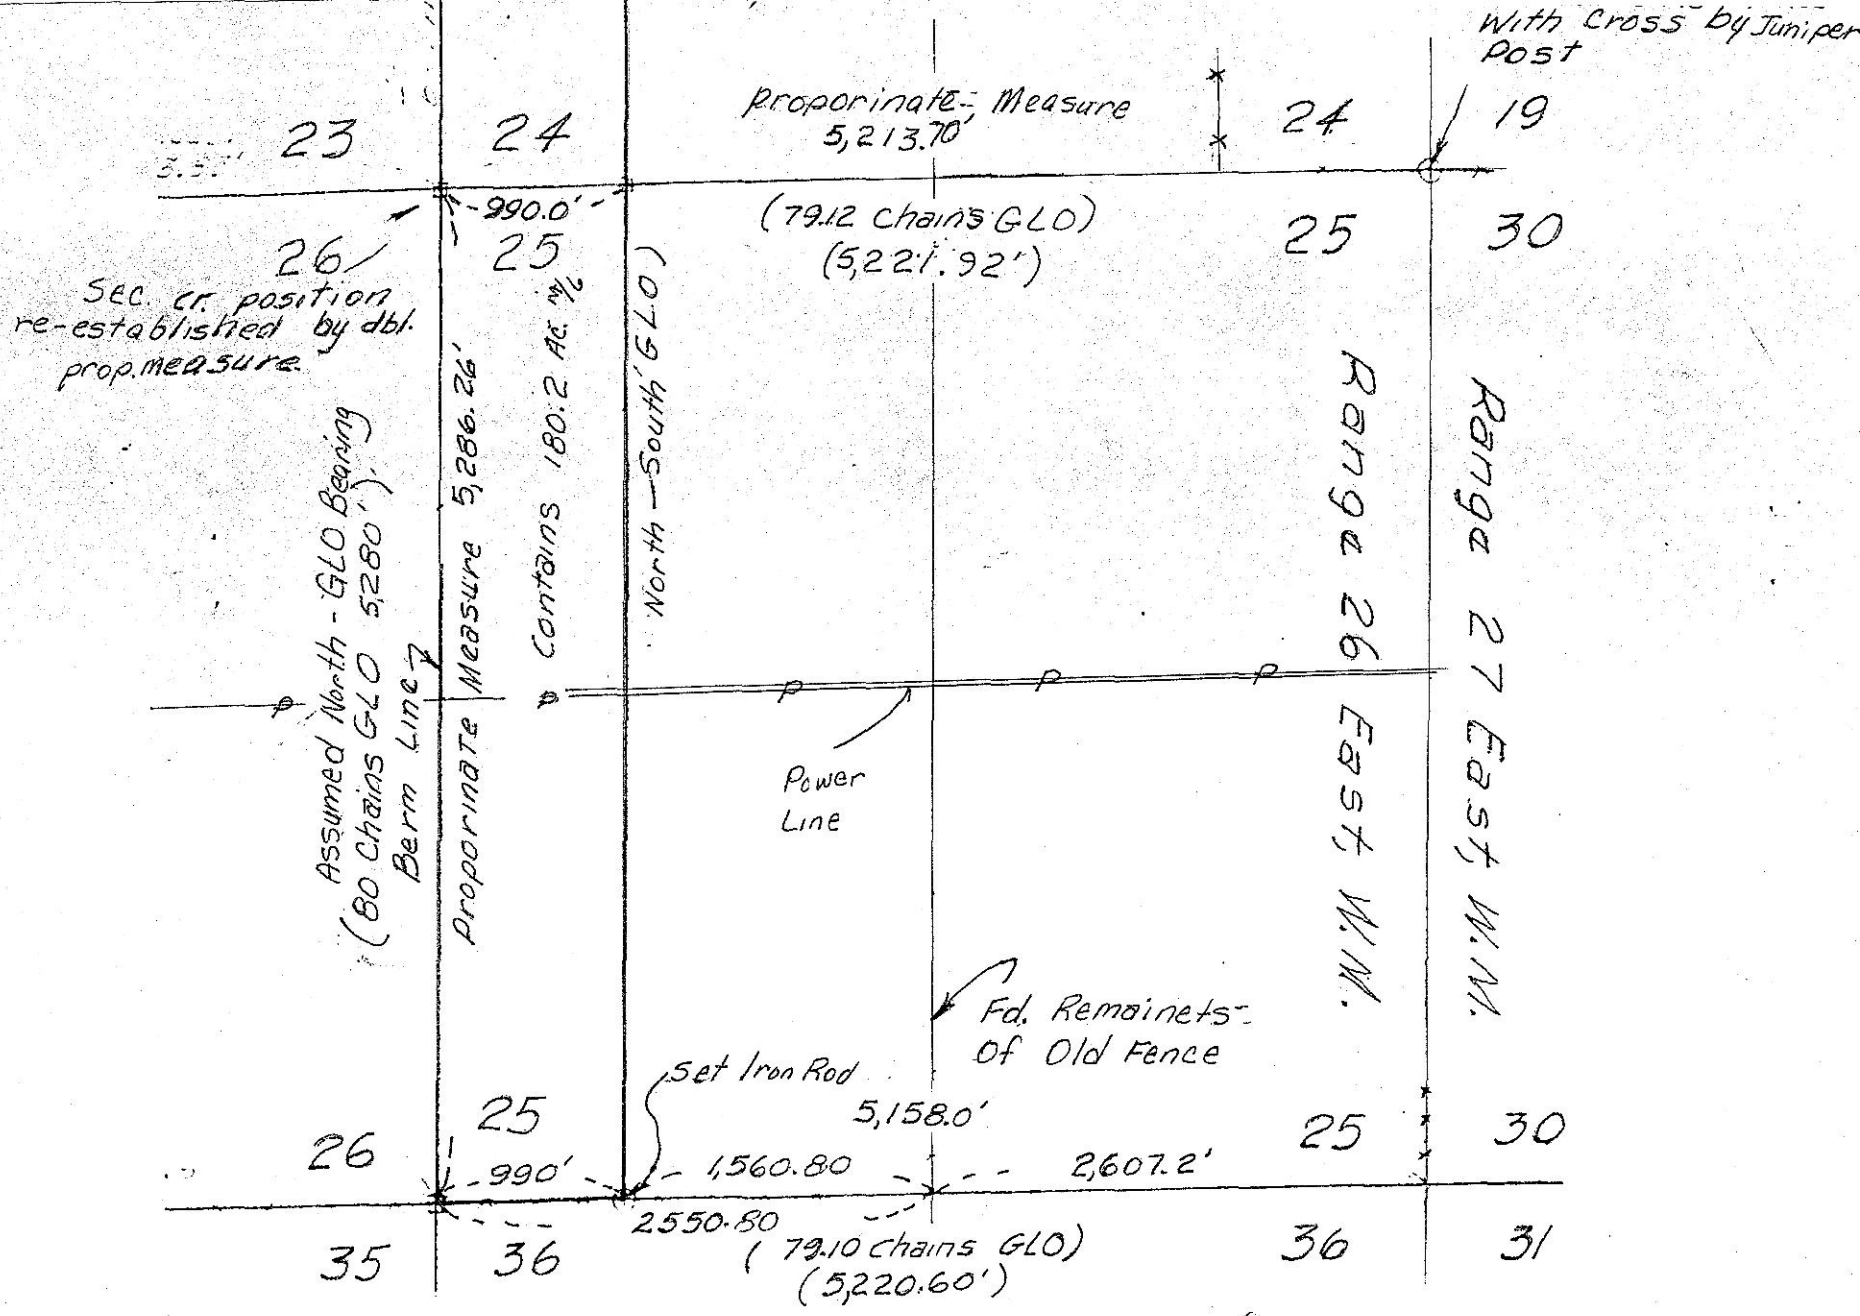 With Cross by Juniper
Post
Proporinate Measure
5,213.70'
23
24
24
19
990.0'
(79.12 Chains GLO)
(5,221.92')
26
25
25
30
Sec. cr. position
re-established by dbl.
prop. measure
Assumed North - GLO Bearing
(80 Chains GLO 5,280')
Berm Line
Proporinate Measure 5,286.26'
Contains 180.2 Ac. m/l
North - South GLO)
Range 26 East, W.M.
Range 27 East, W.M.
P
P
P
P
P
Power
Line
Fd. Remainets
Of Old Fence
Set Iron Rod
5,158.0'
26
25
25
30
990'
1,560.80
2,607.2'
2550.80
(79.10 Chains GLO)
(5,220.60')
35
36
36
31